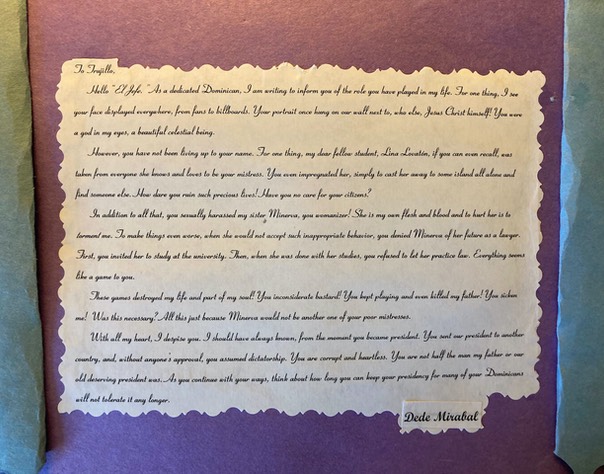 To Trujillo,
Hello "El Jefe." As a dedicated Dominican, I am writing to inform you of the role you have played in my life. For one thing, I see
your face displayed everywhere, from fans to billboards. Your portrait once hung on our wall next to, who else, Jesus Christ himself! You were
a god in my eyes, a beautiful celestial being.
However, you have not been living up to your name. For one thing, my dear fellow student, Lina Lovatón, if you can even recall, was
taken from everyone she knows and loves to be your mistress. You even impregnated her, simply to cast her away to some island all alone and
find someone else. How dare you ruin such precious lives! Have you no care for your citizens?
In addition to all that, you sexually harassed my sister Minerva, you womanizer! She is my own flesh and blood and to hurt her is to
torment me. To make things even worse, when she would not accept such inappropriate behavior, you denied Minerva of her future as a lawyer.
First, you invited her to study at the university. Then, when she was done with her studies, you refused to let her practice law. Everything seems
like a game to you.
These games destroyed my life and part of my soul! You inconsiderate bastard! You kept playing and even killed my father! You sicken
me! Was this necessary? All this just because Minerva would not be another one of your poor mistresses.
With all my heart, I despise you. I should have always known, from the moment you became president. You sent our president to another
country, and, without anyone's approval, you assumed dictatorship. You are corrupt and heartless. You are not half the man my father or our
old deserving president was. As you continue with your ways, think about how long you can keep your presidency for many of your Dominicans
will not tolerate it any longer.
Dede Mirabal